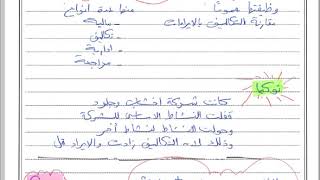 وظيفتها عمومًا
منها عدة أنواع
مقارنة التكاليف بالإيرادات
- مالية
- تكاليف
- ادارية
- مراجعة
نوكيا
كانت شركة اخشاب وجلود
قفلت النشاط الاساسى للشركة
وحولت النشاط لنشاط أخر
وذلك لان التكاليف زادت والايراد قل